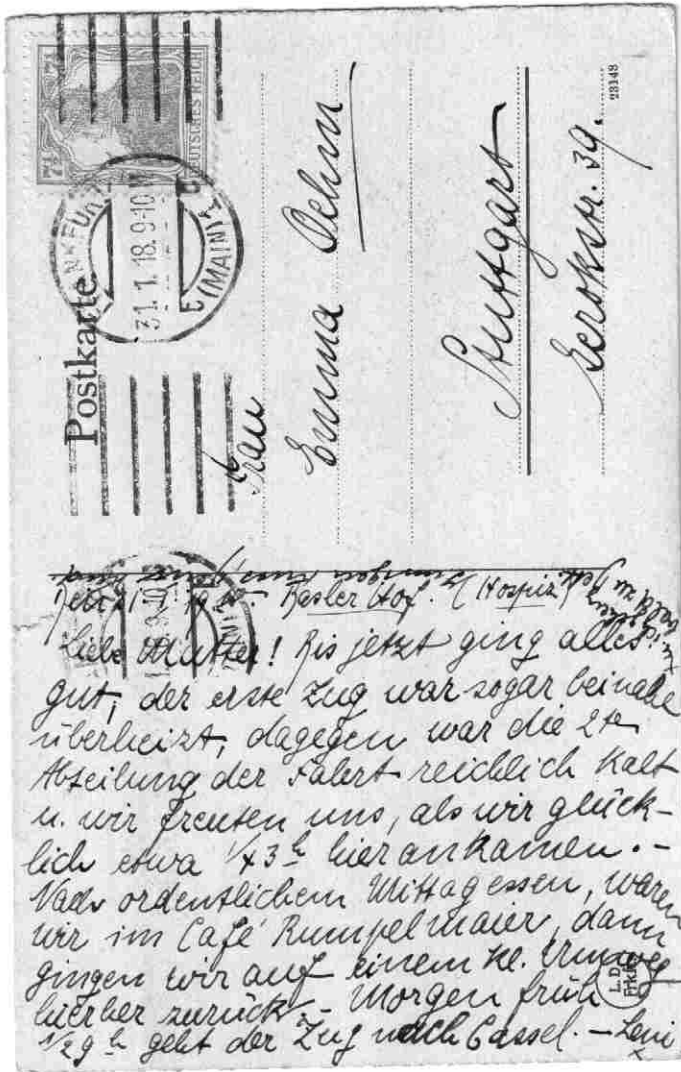 Postkarte
7½ 7½
DEUTSCHES REICH
FRANKFURT
31.1.18. 9-10
(MAIN)
Frau
Emma Oehm
Stuttgart
Gerokstr. 39.
23148
Den 31. I. Basler Hof. (Hospiz)
Liebe Mutter! Bis jetzt ging alles
gut, der erste Zug war sogar beinahe
überheizt, dagegen war die 2te
Abteilung der Fahrt reichlich kalt
u. wir freuten uns, als wir glück-
lich etwa ¼3 h hier ankamen. -
Nach ordentlichem Mittagessen, waren
wir im Café Rumpelmaier, dann
gingen wir auf einem kl. Umweg
hierher zurück. - Morgen früh
½9 h geht der Zug nach Cassel. - Leni
bald zu Bett